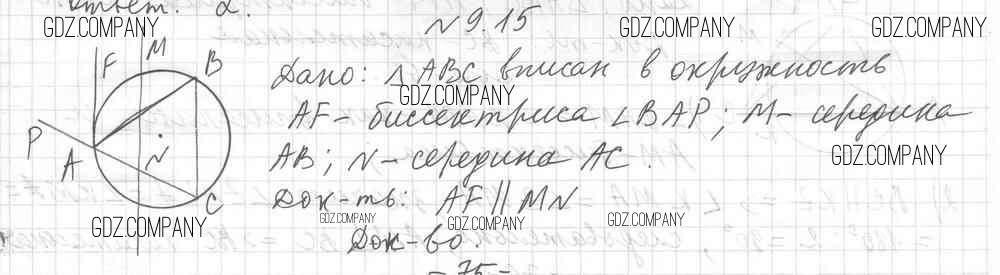 Ответ: 2.
N 9.15
GDZ.COMPANY GDZ.COMPANY GDZ.COMPANY
F M B
P A N C
Дано: △ABC вписан в окружность
GDZ.COMPANY
AF - биссектриса ∠BAP; M - середина
AB; N - середина AC.
GDZ.COMPANY
Док-ть: AF || MN
GDZ.COMPANY GDZ.COMPANY GDZ.COMPANY GDZ.COMPANY
Док-во:
- 75 -